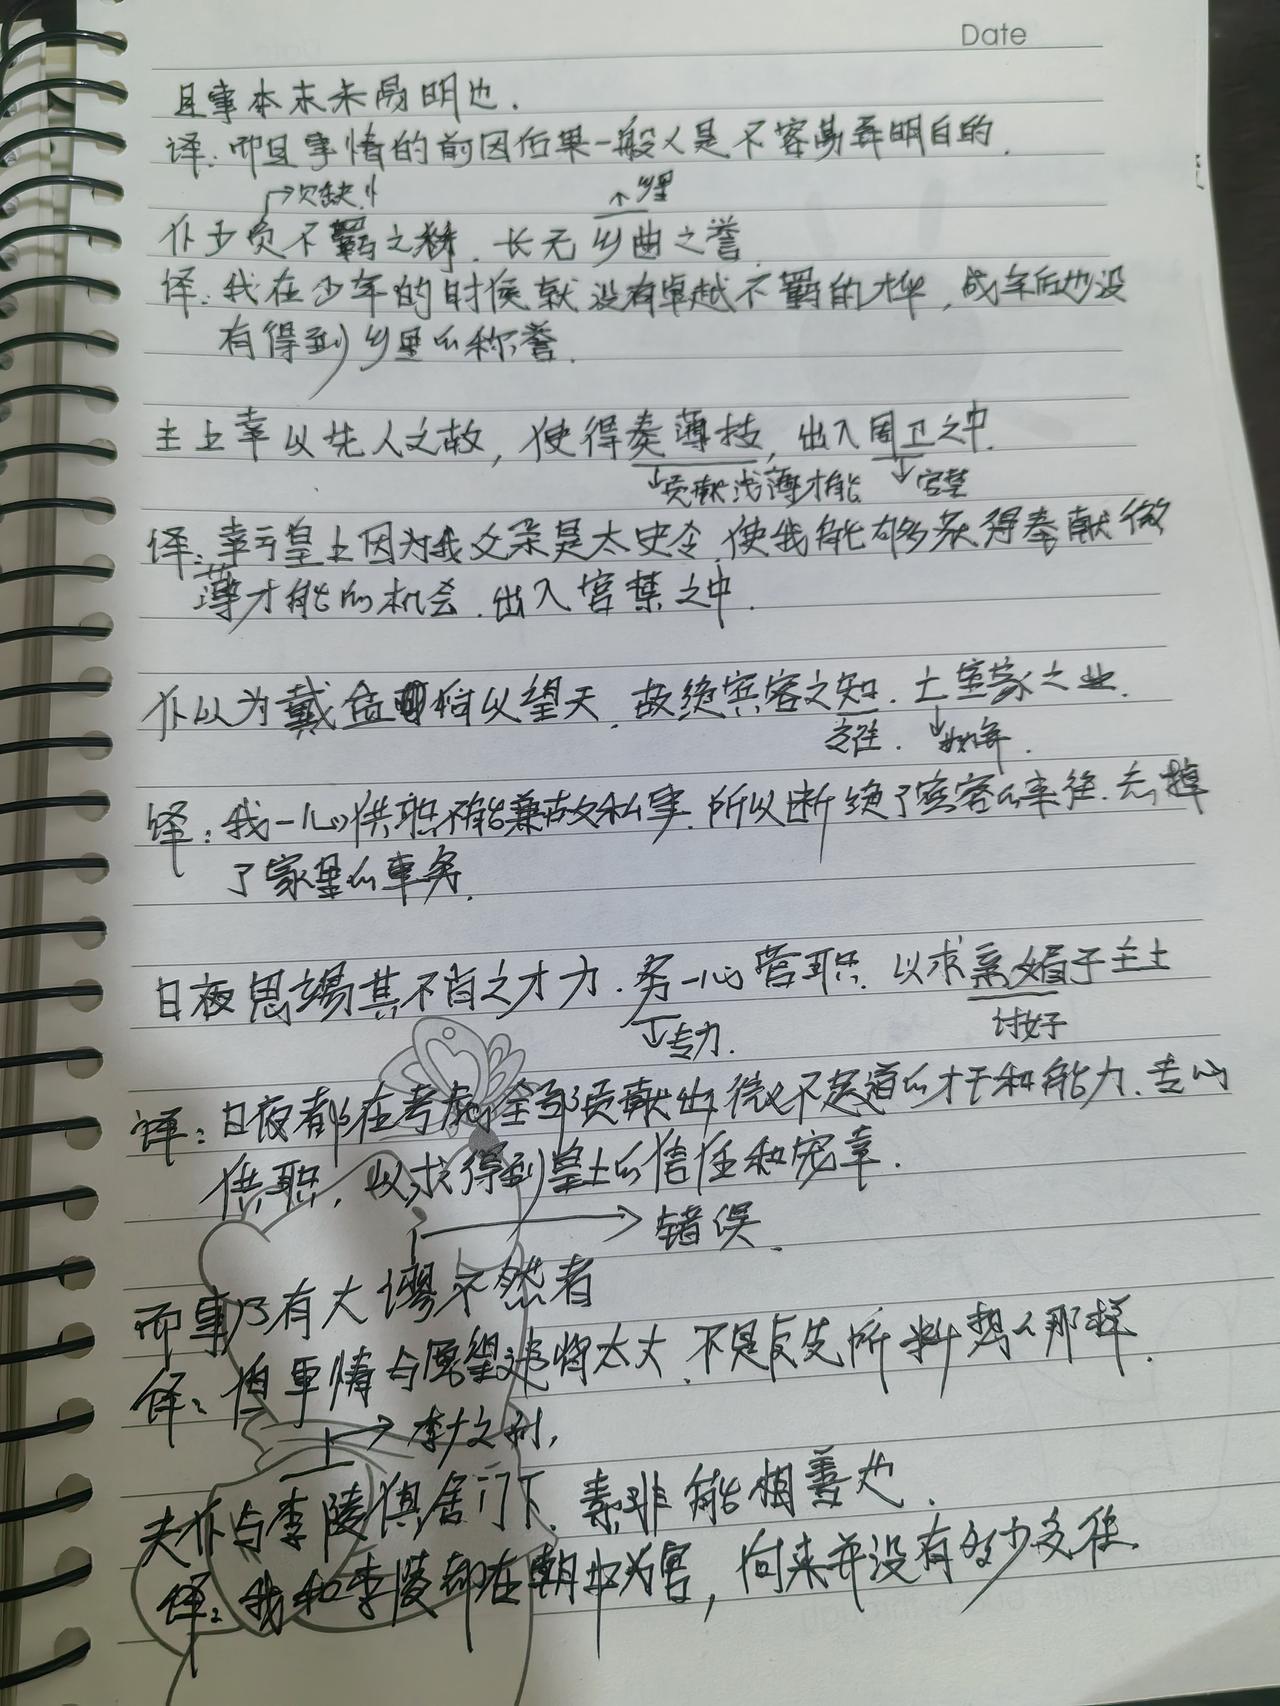 Date
且事本末未易明也.
译:而且事情的前因后果一般人是不容易弄明白的.
→欠缺
乡里
仆少负不羁之才,长无乡曲之誉
译:我在少年的时侯就没有卓越不羁的才华,成年后也没
有得到乡里的称誉.
主上幸以先人之故,使得奏薄技,出入周卫之中.
↓贡献浅薄才能 ↓宫禁
译:幸亏皇上因为我父亲是太史令,使我能够获得奉献微
薄才能的机会.出入宫禁之中.
仆以为戴盆何以望天.故绝宾客之知.亡室家之业.
交往. ↓抛弃.
译:我一心供职不能兼故私事.所以断绝了宾客的来往.去掉
了家里的事务.
日夜思竭其不肖之才力.务一心营职.以求亲媚于主上
↓专力. 讨好
译:日夜都在考虑全部贡献出微不足道的才干和能力.专心
供职,以求得到皇上的信任和宠幸.
→错误.
而事乃有大谬不然者
译:但事情与愿望违将太大.不是反先所料想的那样.
→李广之孙,
夫仆与李陵俱居门下.素非能相善也.
译:我和李陵都在朝中为官,向来并没有多少交往.